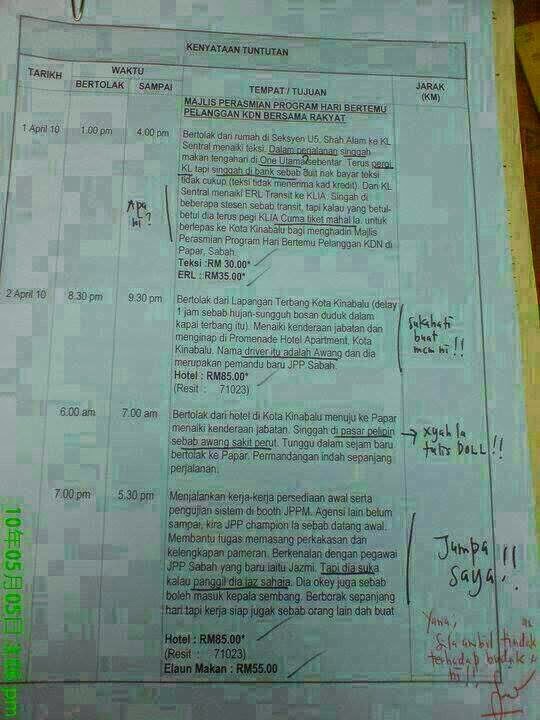 KENYATAAN TUNTUTAN
TARIKH
WAKTU
BERTOLAK
SAMPAI
TEMPAT / TUJUAN
JARAK
(KM)
MAJLIS PERASMIAN PROGRAM HARI BERTEMU
PELANGGAN KDN BERSAMA RAKYAT
1 April 10
1.00 pm
4.00 pm
Bertolak dari rumah di Seksyen U5, Shah Alam ke KL
Sentral menaiki teksi. Dalam perjalanan singgah
makan tengahari di One Utama sebentar. Terus pergi
KL tapi singgah di bank sebab duit nak bayar teksi
tidak cukup (teksi tidak menerima kad kredit). Dari KL
Sentral menaiki ERL Transit ke KLIA. Singah di
beberapa stesen sebab transit, tapi kalau yang betul-
betul dia terus pegi KLIA Cuma tiket mahal la. untuk
berlepas ke Kota Kinabalu bagi menghadiri Majlis
Perasmian Program Hari Bertemu Pelanggan KDN di
Papar, Sabah.
Teksi :RM 30.00*
ERL : RM35.00*
Apa
ni?
2 April 10
8.30 pm
9.30 pm
Bertolak dari Lapangan Terbang Kota Kinabalu (delay
1 jam sebab hujan-sungguh bosan duduk dalam
kapal terbang itu). Menaiki kenderaan jabatan dan
menginap di Promenade Hotel Apartment, Kota
Kinabalu. Nama driver itu adalah Awang dan dia
merupakan pemandu baru JPP Sabah.
Hotel : RM85.00*
(Resit : 71023)
sukahati
buat
mcm ni!!
6.00 am
7.00 am
Bertolak dari hotel di Kota Kinabalu menuju ke Papar
menaiki kenderaan jabatan. Singgah di pasar pelipin
sebab awang sakit perut. Tunggu dalam sejam baru
bertolak ke Papar. Permandangan indah sepanjang
perjalanan.
→ xyah la
tulis DOLL!!
7.00 pm
5.30 pm
Menjalankan kerja-kerja persediaan awal serta
pengujian sistem di booth JPPM. Agensi lain belum
sampai, kira JPP champion la sebab datang awal.
Membantu tugas memasang perkakasan dan
kelengkapan pameran. Berkenalan dengan pegawai
JPP Sabah yang baru iaitu Jazmi. Tapi dia suka
kalau panggil dia jaz sahaja. Dia okey juga sebab
boleh masuk kepala sembang. Berborak sepanjang
hari tapi kerja siap jugak sebab orang lain dah buat
Hotel : RM85.00*
(Resit : 71023)
Elaun Makan : RM55.00
Jumpa
saya!!
Yana,
Sila ambil tindak
terhadap budak
ni!!
10年05月05日 3:06 pm